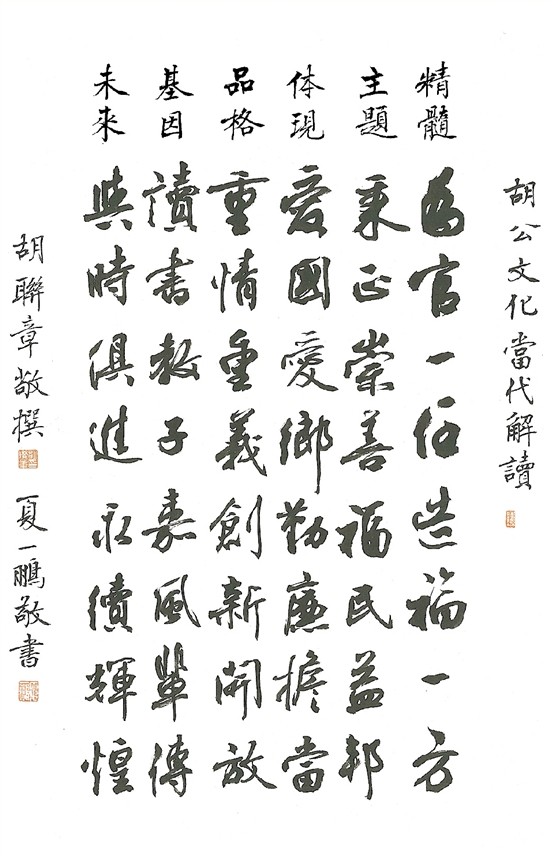 胡公文化當代解讀
精髓 為官一任造福一方
主題 秉正崇善福民益邦
体現 愛國愛鄉勤廉擔當
品格 重情重義創新開放
基因 讀書教子嘉風輩傳
未來 與時俱進永續輝煌
胡聯章敬撰 夏一鵬敬書